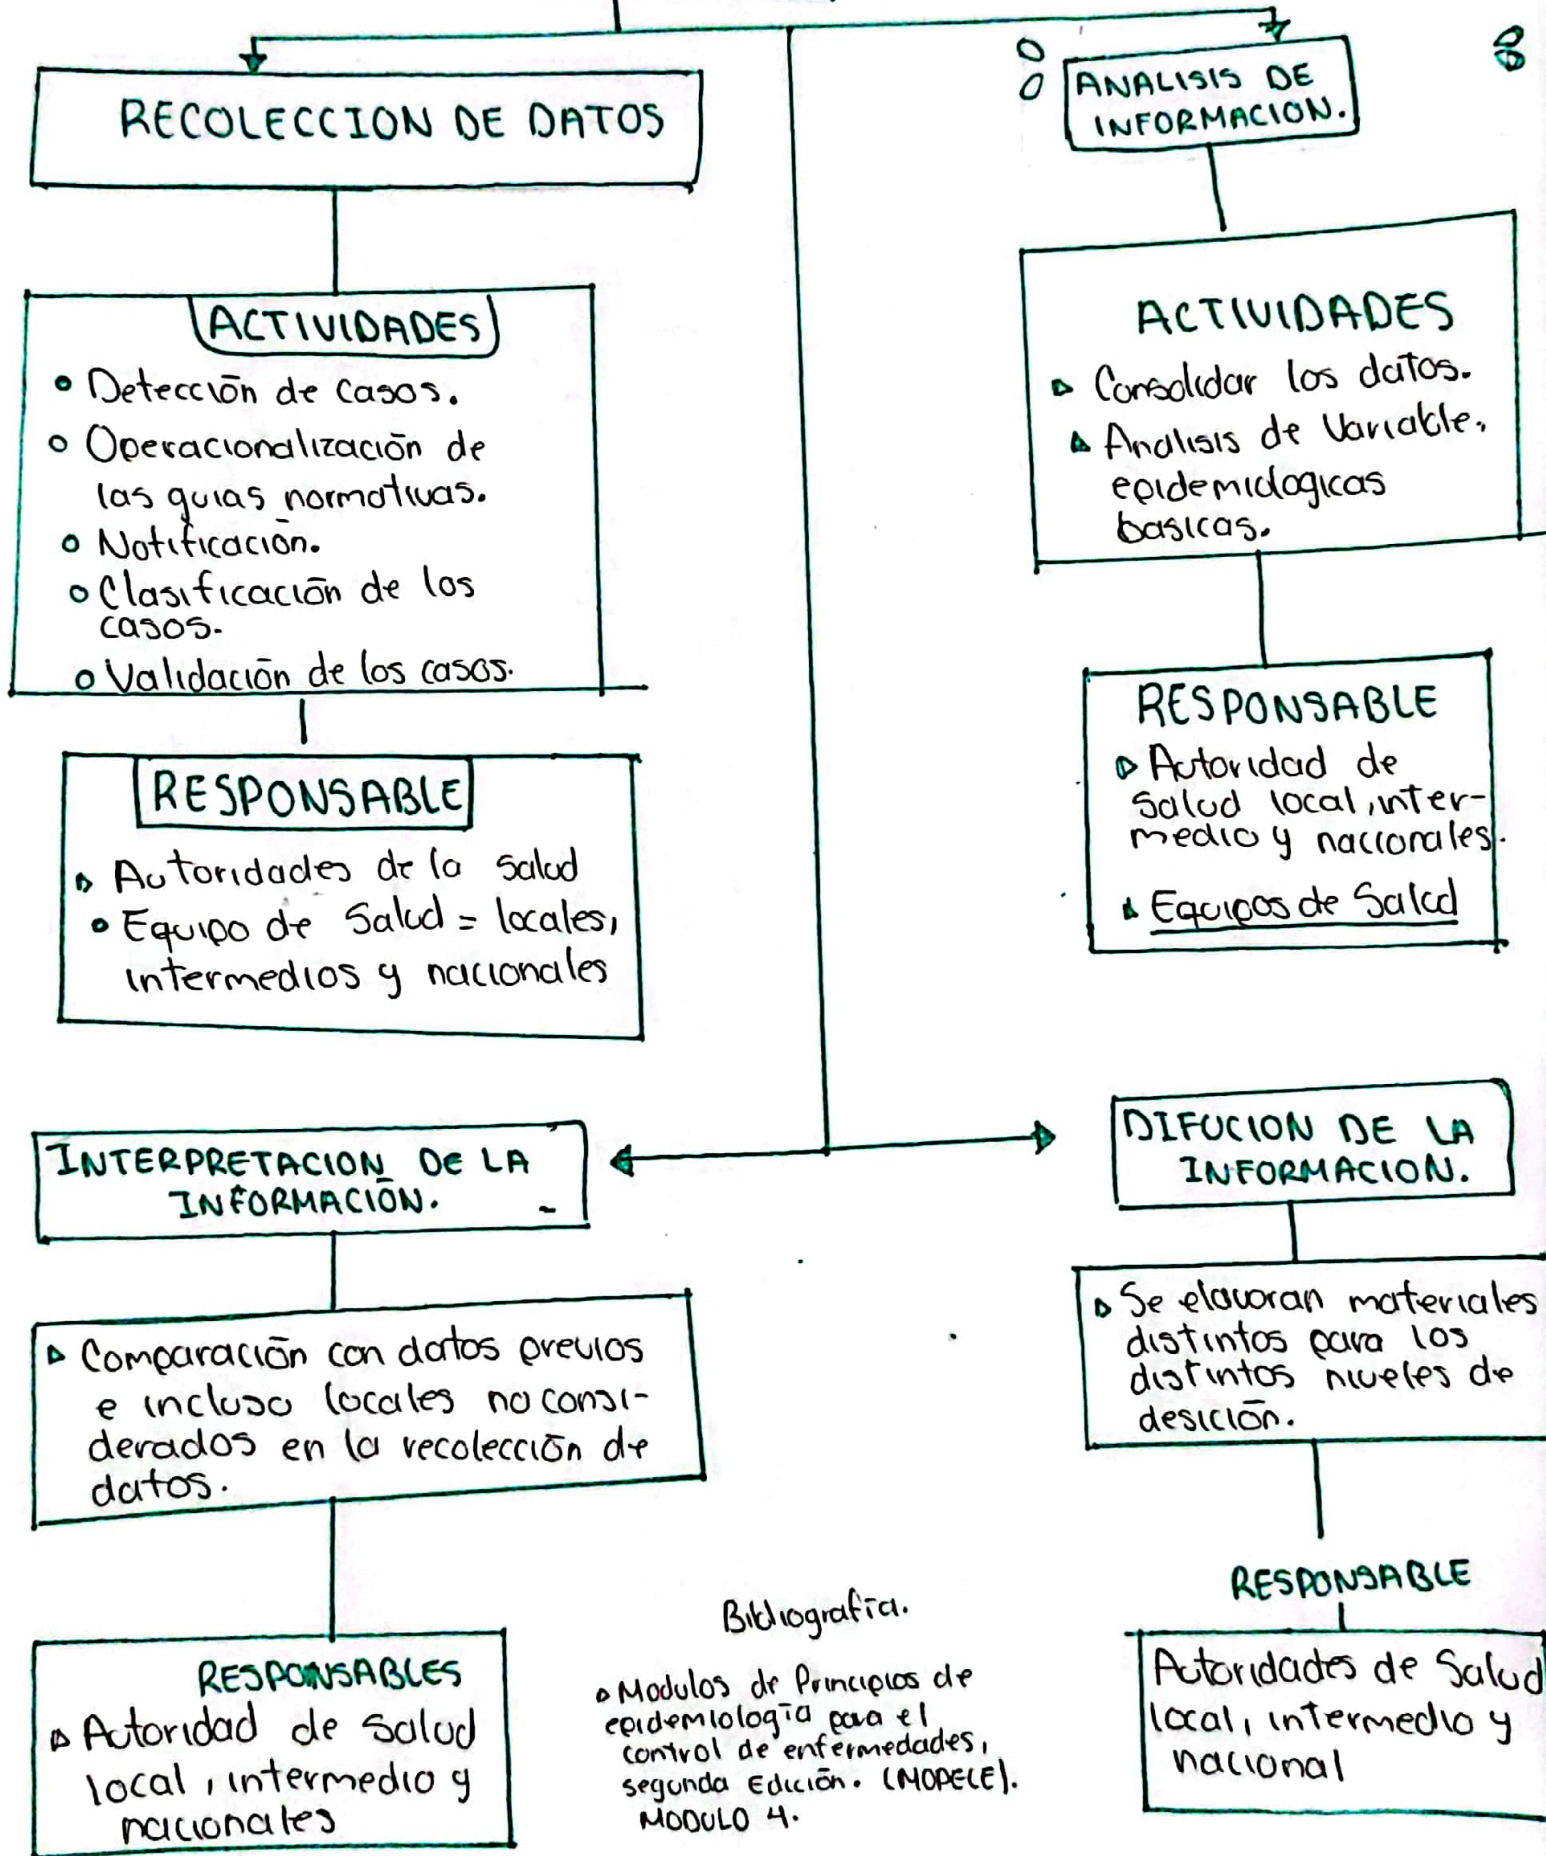 RECOLECCION DE DATOS
ACTIVIDADES
Detección de casos.
Operacionalización de
las guias normativas.
Notificación.
Clasificación de los
casos.
Validación de los casos.
RESPONSABLE
Autoridades de la salud
Equipo de Salud = locales,
intermedios y nacionales
ANALISIS DE
INFORMACION.
ACTIVIDADES
Consolidar los datos.
Analisis de Variable,
epidemiologicas
basicas.
RESPONSABLE
Autoridad de
Salud local, inter-
medio y nacionales.
Equipos de Salud
INTERPRETACION DE LA
INFORMACIÓN.
Comparación con datos previos
e incluso locales no consi-
derados en la recolección de
datos.
RESPONSABLES
Autoridad de salud
local, intermedio y
nacionales
DIFUCION DE LA
INFORMACION.
Se elavoran materiales
distintos para los
distintos niveles de
desición.
RESPONSABLE
Autoridades de Salud
local, intermedio y
nacional
Bibliografía.
Modulos de Principios de
epidemiología para el
control de enfermedades,
segunda Edición. (MOPECE).
MODULO 4.